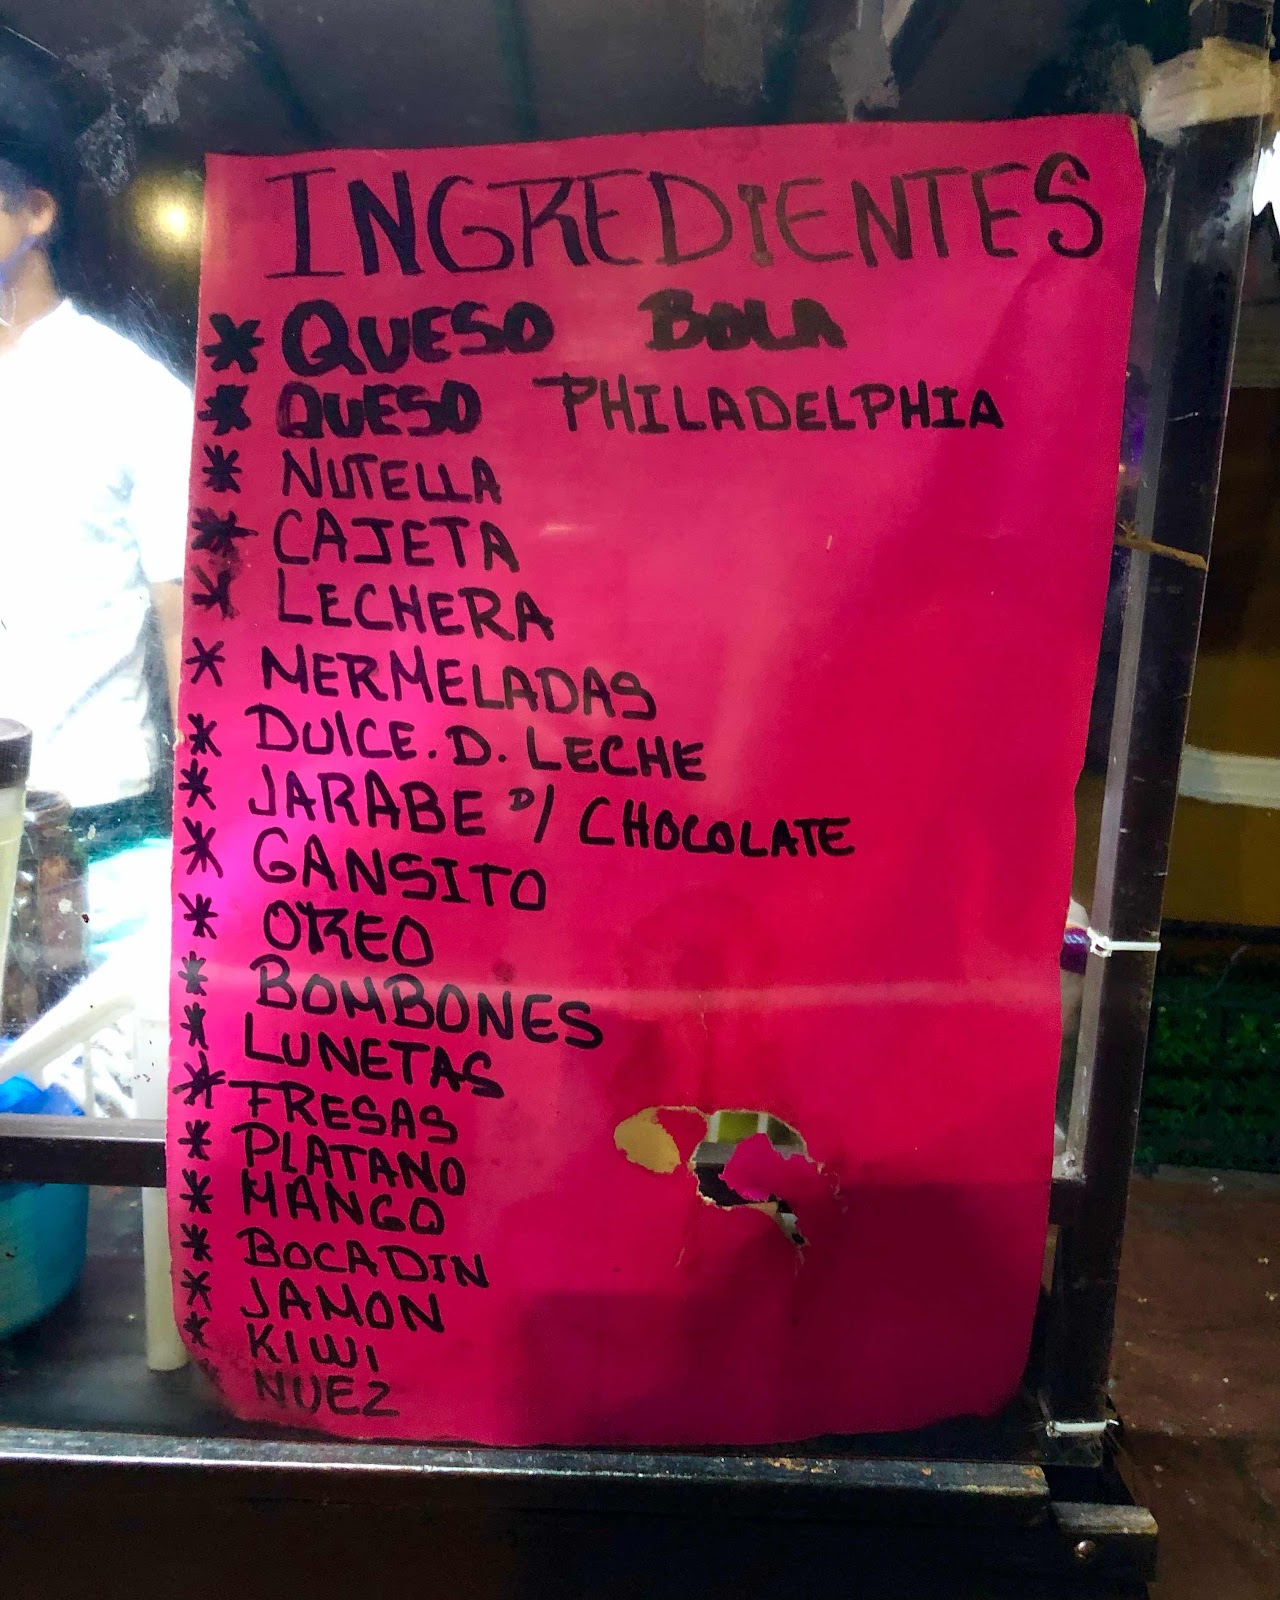 INGREDIENTES
* QUESO BOLA
* QUESO PHILADELPHIA
* NUTELLA
* CAJETA
* LECHERA
* MERMELADAS
* DULCE.D. LECHE
* JARABE D/ CHOCOLATE
* GANSITO
* OREO
* BOMBONES
* LUNETAS
* FRESAS
* PLATANO
* MANGO
* BOCADIN
* JAMON
* KIWI
* NUEZ